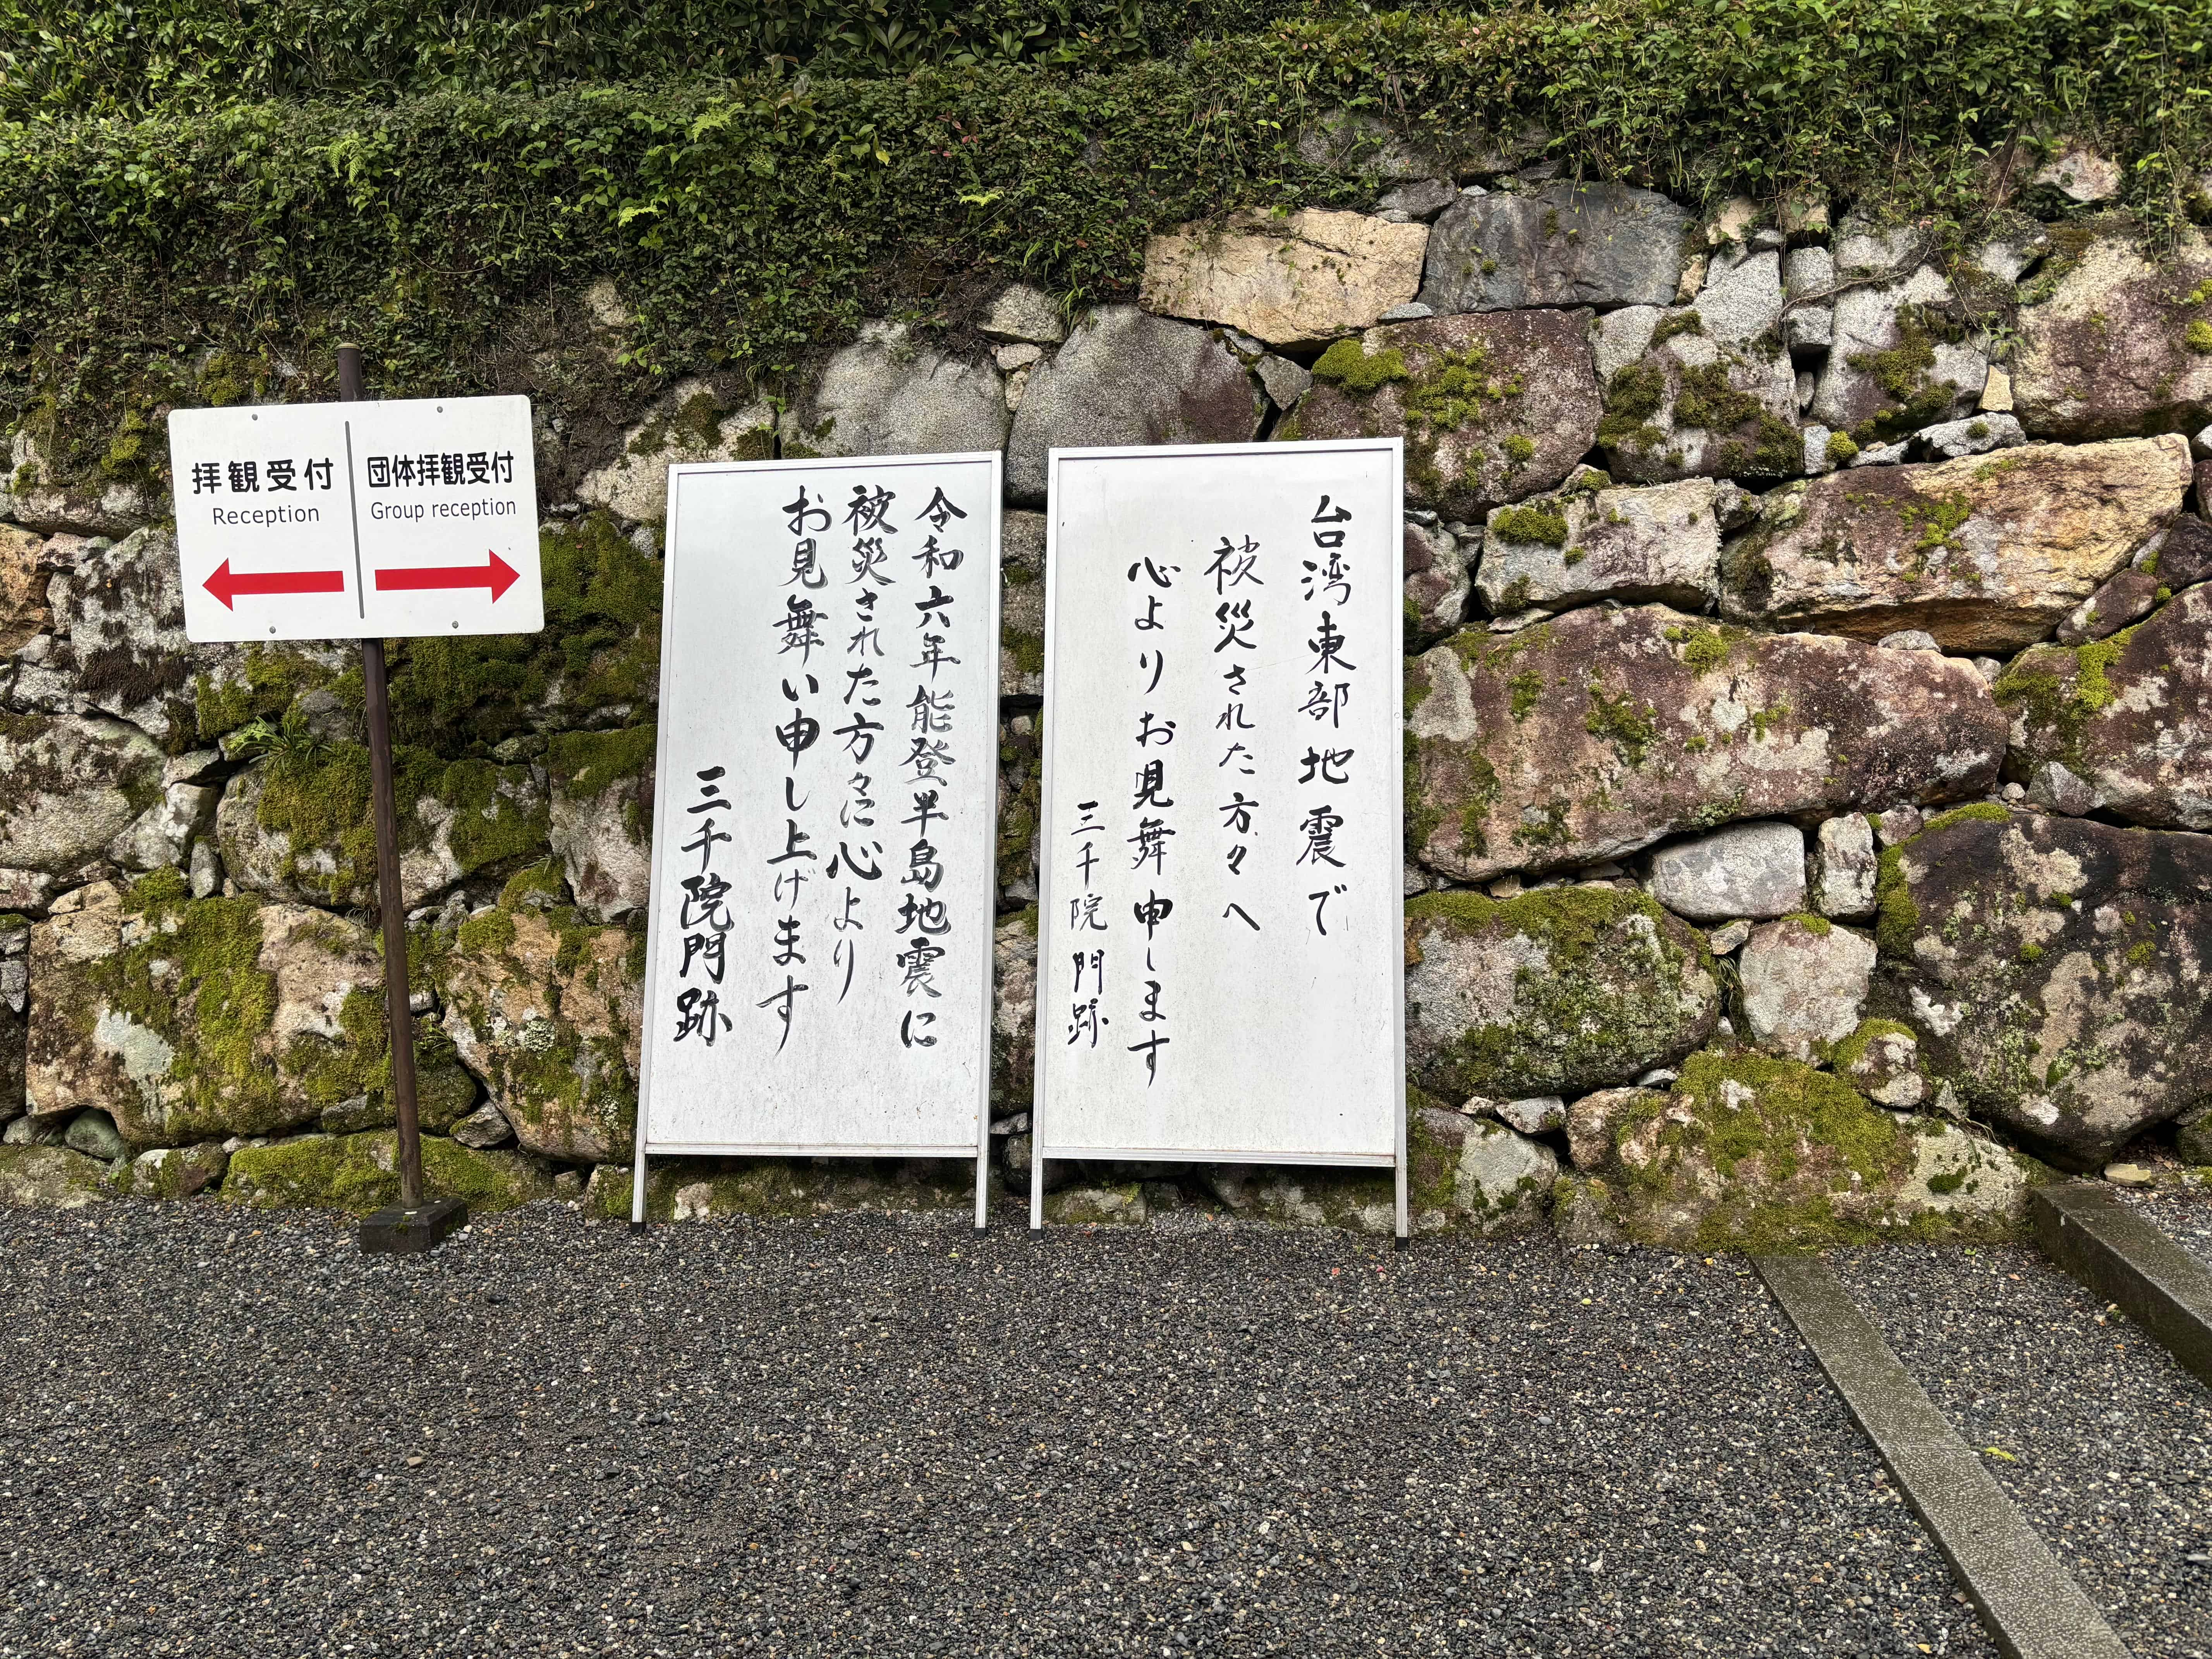 拝観受付
Reception
団体拝観受付
Group reception
令和六年能登半島地震に
被災された方々に心より
お見舞い申し上げます
三千院門跡
台湾東部地震で
被災された方々へ
心よりお見舞申します
三千院門跡